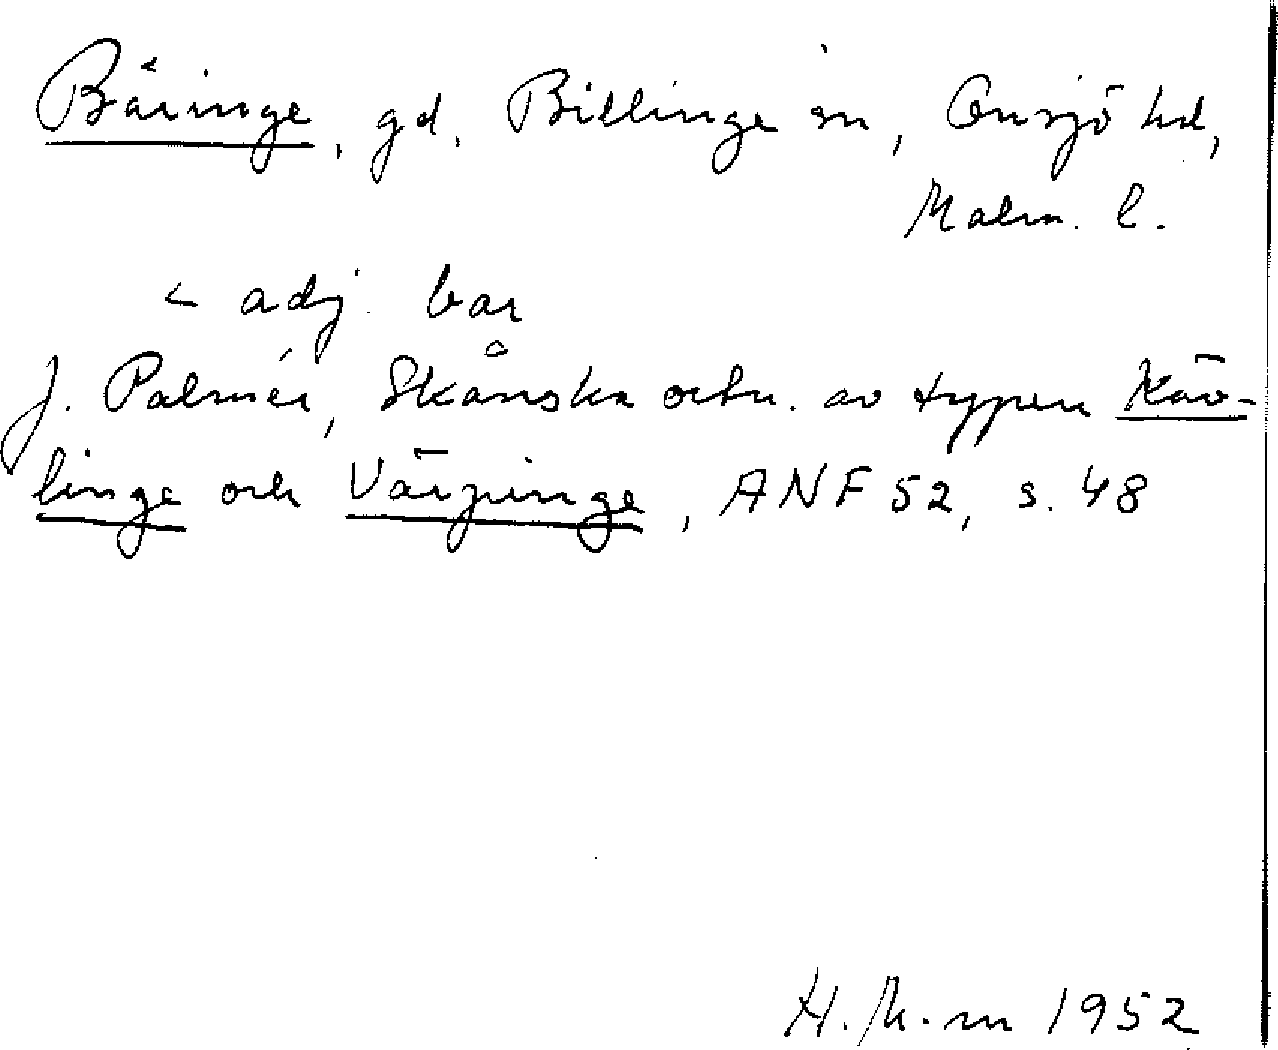 Bäringe, gd, Billinge sn, Onsjö hd,
Malm. l.
< adj. bar
J. Palmér, Skånska ortn. av typen Käv-
linge och Värpinge, ANF 52, s. 48
H. M-m 1952